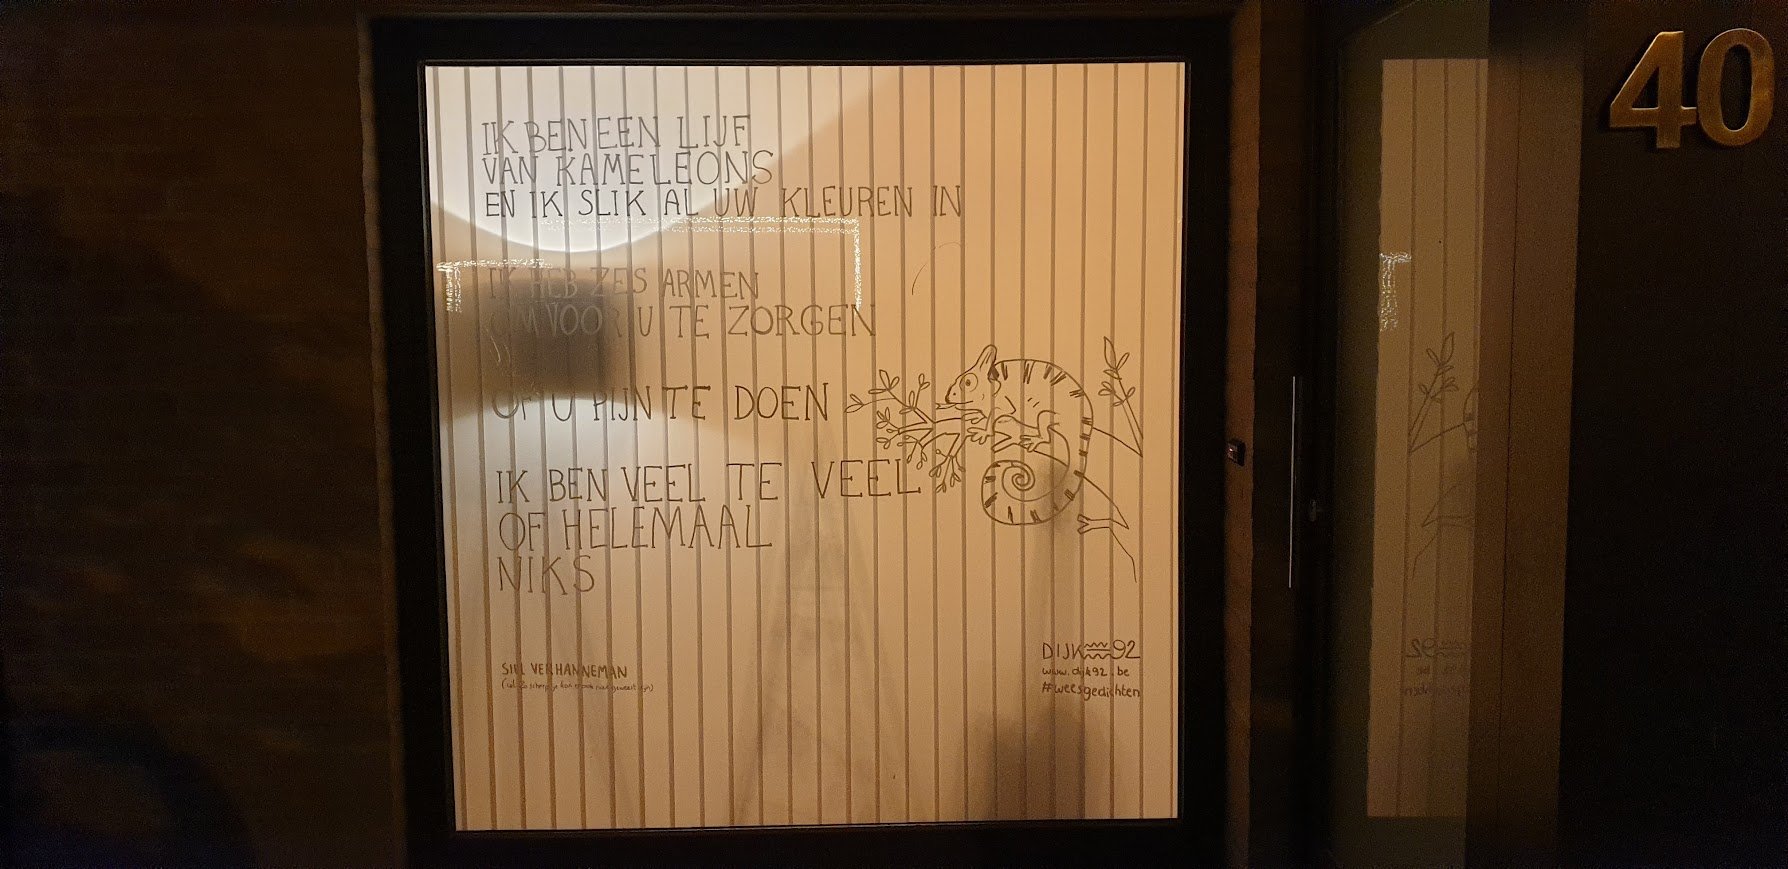 IK BEN EEN LIJF
VAN KAMELEONS
EN IK SLIK AL UW KLEUREN IN
IK HEB ZES ARMEN
OM VOOR U TE ZORGEN
OF U PIJN TE DOEN
IK BEN VEEL TE VEEL
OF HELEMAAL
NIKS
SIEL VERHANNEMAN
DIJK 92
www.dijk92.be
#weesgedichten
40